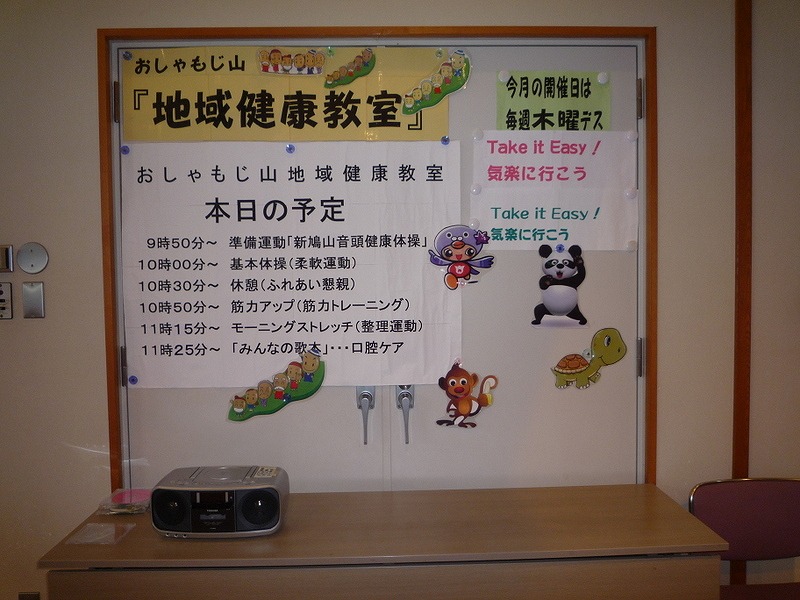 おしゃもじ山
『地域健康教室』
おしゃもじ山地域健康教室
本日の予定
9時50分～ 準備運動「新鳩山音頭健康体操」
10時00分～ 基本体操(柔軟運動)
10時30分～ 休憩(ふれあい懇親)
10時50分～ 筋力アップ(筋力トレーニング)
11時15分～ モーニングストレッチ(整理運動)
11時25分～ 「みんなの歌本」･･･口腔ケア
今月の開催日は
毎週木曜デス
Take it Easy！
気楽に行こう
Take it Easy！
気楽に行こう